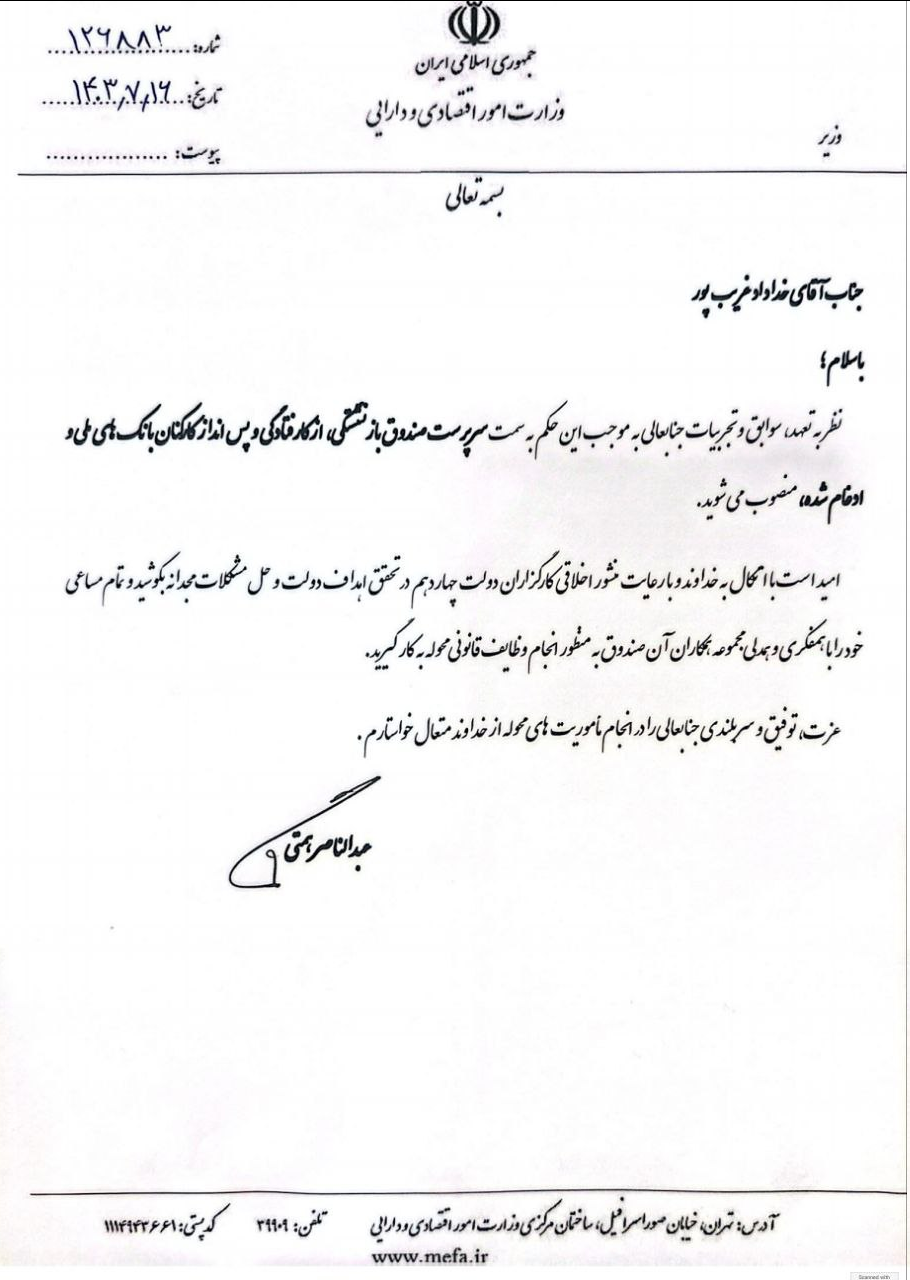 جمهوری اسلامی ایران
وزارت امور اقتصادی و دارایی
وزیر
شماره: ۱۲۶۸۸۳
تاریخ: ۱۴۰۳٫۷٫۱۶
پیوست: ..................
بسمه تعالی
جناب آقای خداداد غریب پور
باسلام؛
نظر به تعهد، سوابق و تجربیات جنابعالی به موجب این حکم به سمت سرپرست صندوق بازنشستگی، ازکارفتادگی و پس انداز کارکنان بانک های ملی و
ادغام شده، منصوب می شوید.
امید است با اتکال به خداوند و با رعایت منشور اخلاقی کارگزاران دولت چهاردهم در تحقق اهداف دولت و حل مشکلات مجدانه بکوشید و تمام مساعی
خود را با همفکری و همدلی مجموعه همکاران آن صندوق به منظور انجام وظایف قانونی محوله به کار گیرید.
عزت، توفیق و سربلندی جنابعالی را در انجام مأموریت های محوله از خداوند متعال خواستارم.
عبدالناصر همتی
آدرس: تهران، خیابان صوراسرافیل، ساختمان مرکزی وزارت امور اقتصادی و دارایی تلفن: ۳۹۹۰۹ کدپستی: ۱۱۱۴۹۴۳۶۶۱
www.mefa.ir
Scanned with